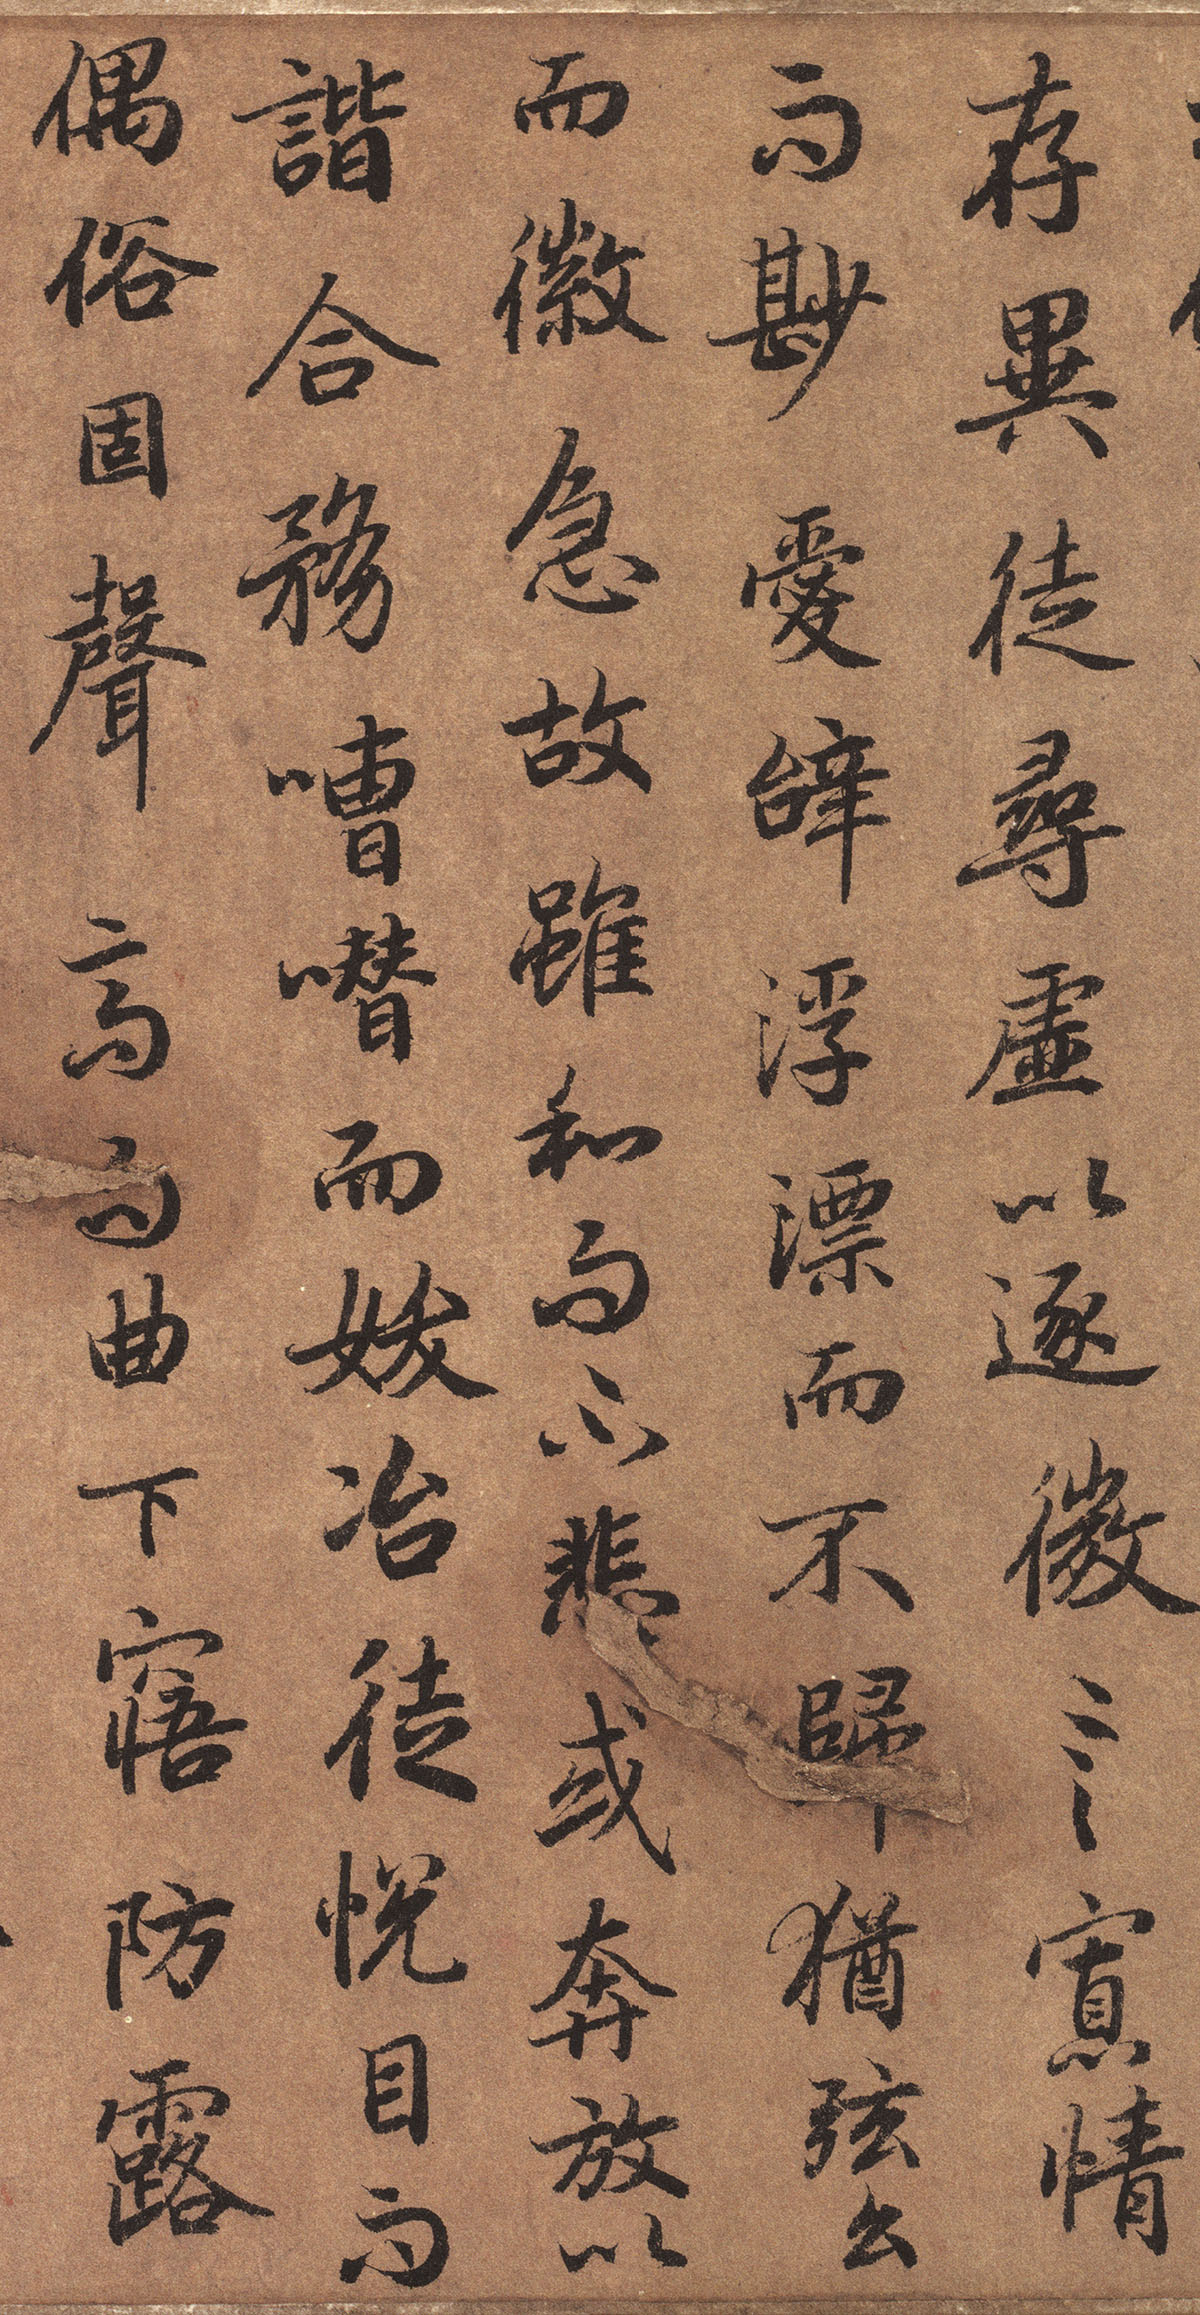 存異徒尋虛以逐微言寡情
而尠愛辝浮漂而不歸猶弦幺
而徽急故雖和而不悲或奔放以
諧合務嘈囋而妖冶徒悅目而
偶俗固聲高而曲下寤防露